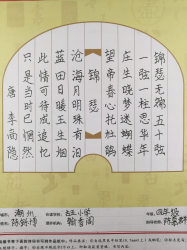 锦瑟无端五十弦
一弦一柱思华年
庄生晓梦迷蝴蝶
望帝春心托杜鹃
【锦瑟】
沧海月明珠有泪
蓝田日暖玉生烟
此情可待成追忆
只是当时已惘然
唐 李商隐
潮州
小学
四年级
翰香阁